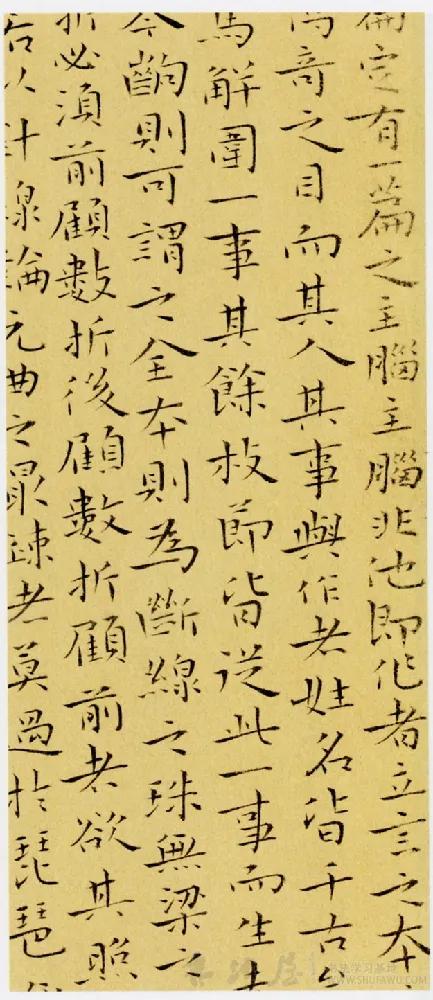 定有一篇之主腦主腦非他即作者立言之本
奇之目而其人其事與作者姓名皆千古
馬解圍一事其餘枝節皆從此一事而生
齣則可謂之全本則為斷線之珠無梁之
折必須前顧數折後顧數折顧前者欲其照
若以針線論元曲之最疎者莫過於琵琶
WWW.SHUFAWU.COM